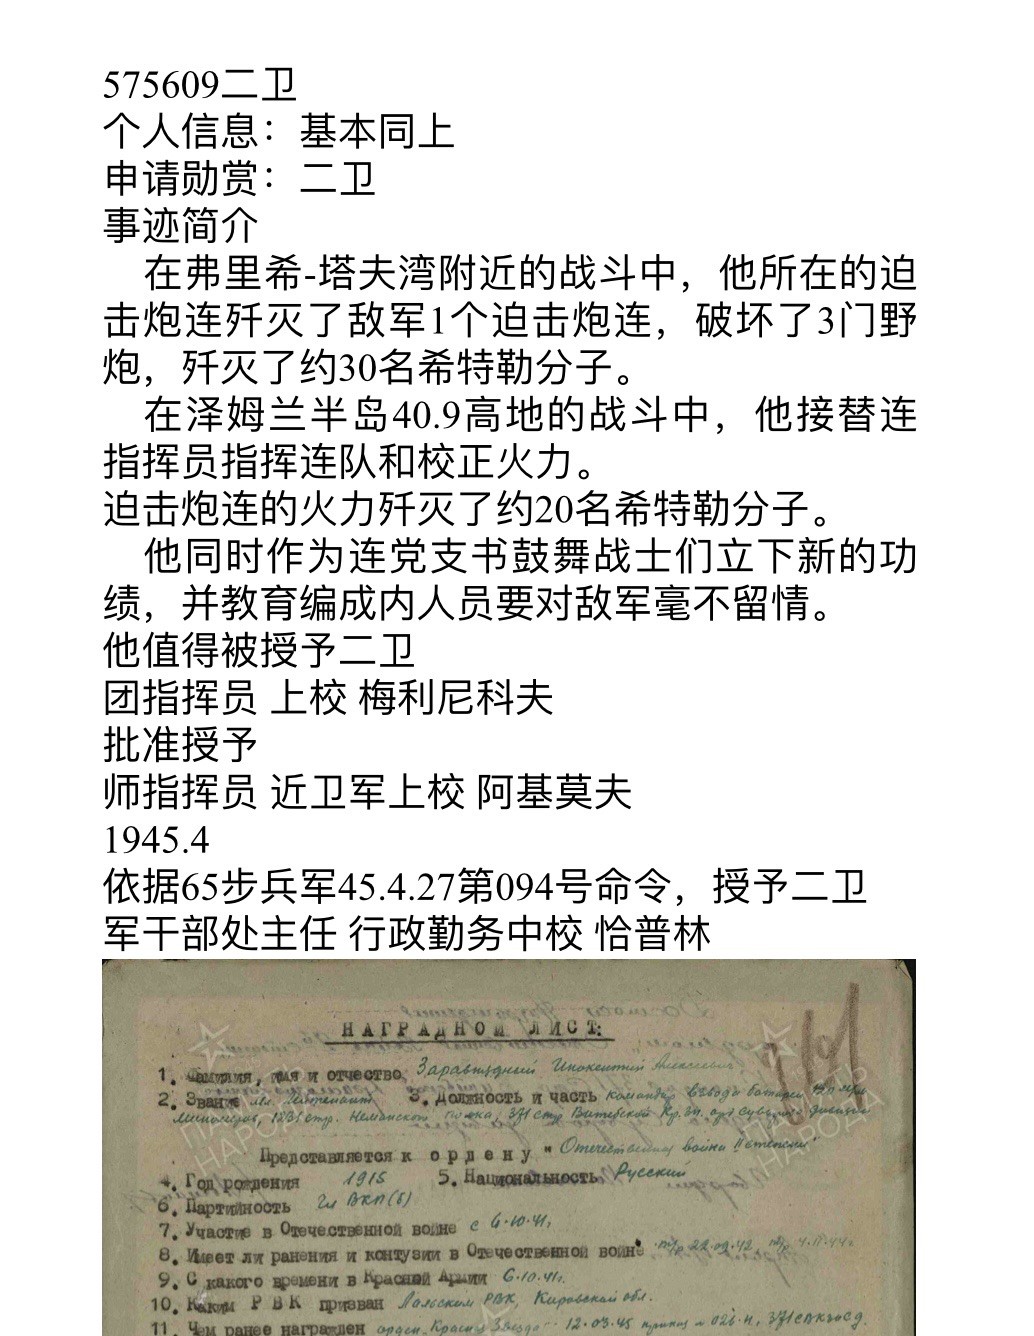 575609二卫
个人信息：基本同上
申请勋赏：二卫
事迹简介
在弗里希-塔夫湾附近的战斗中，他所在的迫
击炮连歼灭了敌军1个迫击炮连，破坏了3门野
炮，歼灭了约30名希特勒分子。
在泽姆兰半岛40.9高地的战斗中，他接替连
指挥员指挥连队和校正火力。
迫击炮连的火力歼灭了约20名希特勒分子。
他同时作为连党支书鼓舞战士们立下新的功
绩，并教育编成内人员要对敌军毫不留情。
他值得被授予二卫
团指挥员 上校 梅利尼科夫
批准授予
师指挥员 近卫军上校 阿基莫夫
1945.4
依据65步兵军45.4.27第094号命令，授予二卫
军干部处主任 行政勤务中校 恰普林
НАГРАДНОЙ ЛИСТ.
1. Фамилия, имя и отчество Инокентий Алексеевич
2. Звание мл. лейтенант 3. Должность и часть командир взвода батареи
1231 стр. Неманского полка, 371 стр. Витебской Кр. дивизии
Представляется к ордену "Отечественной войны II степени"
4. Год рождения 1915 5. Национальность Русский
6. Партийность Чл ВКП(б)
7. Участие в Отечественной войне с 6.10.41г
8. Имеет ли ранения и контузии в Отечественной войне 22.09.42 4.11.44г
9. С какого времени в Красной Армии 6.10.41г.
10. Каким РВК призван Лальским РВК, Кировской обл.
11. Чем ранее награжден орден „Красная Звезда" 12.03.45